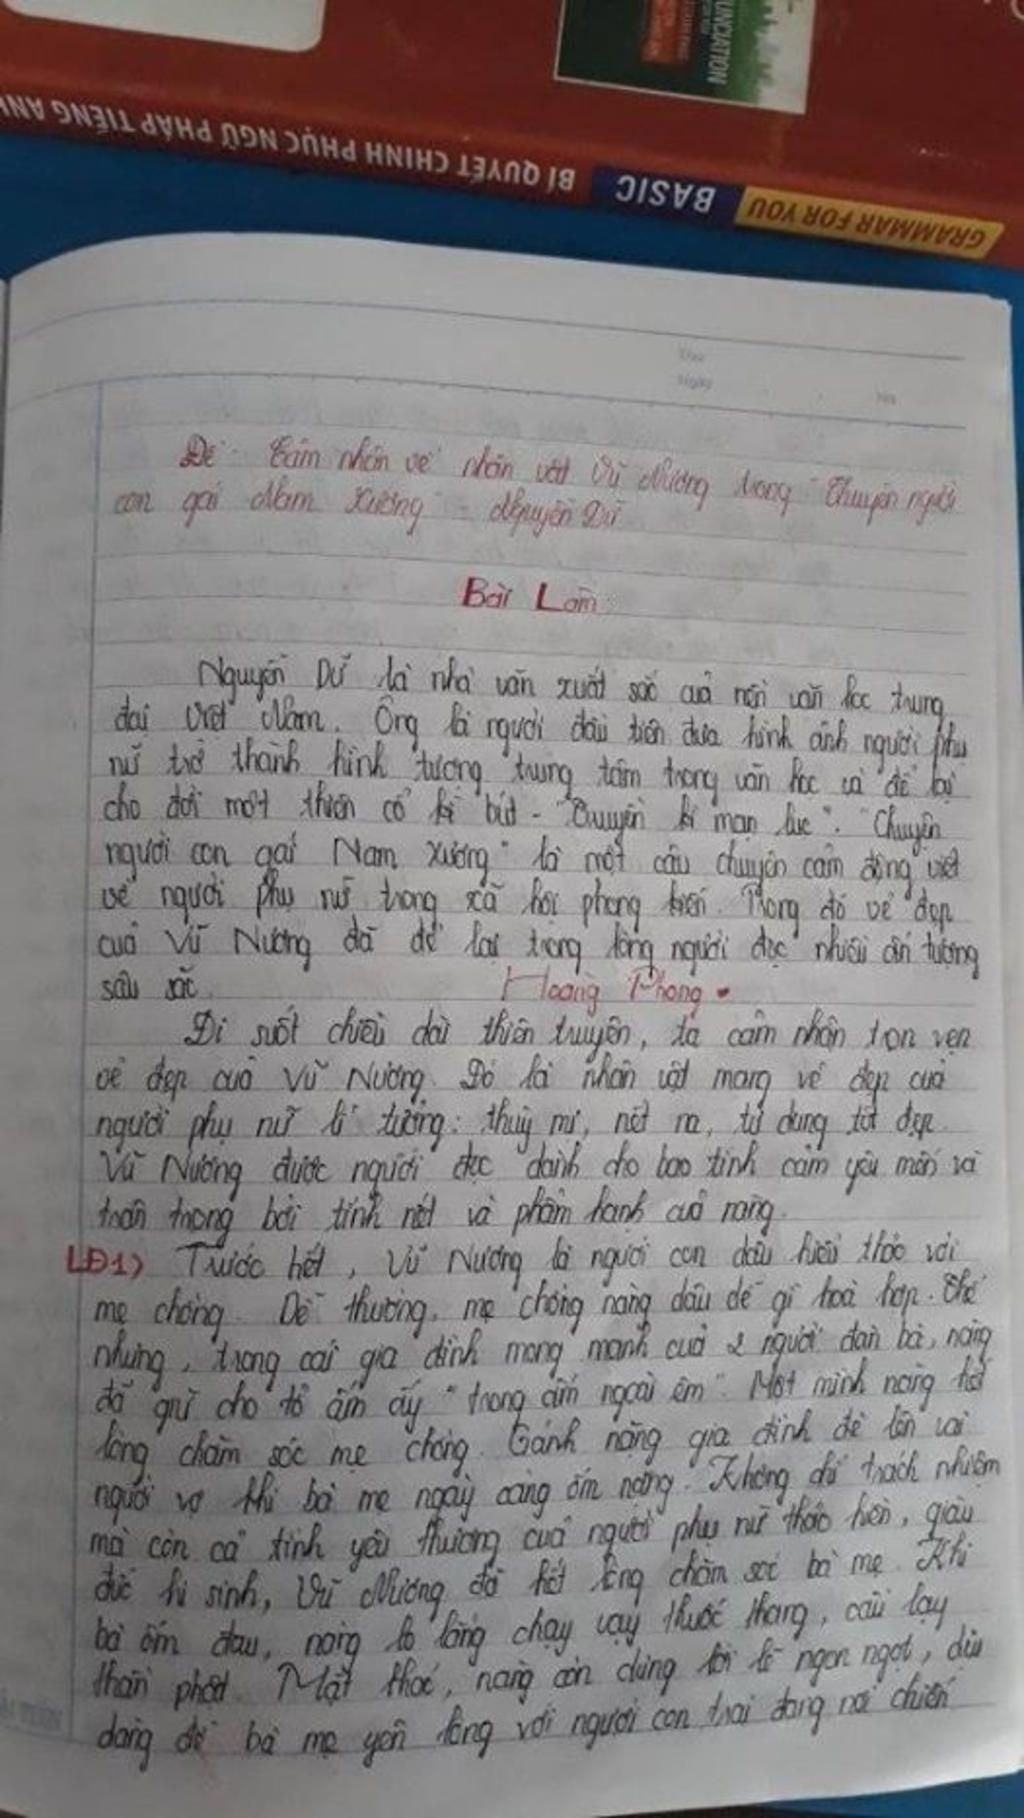 GRAMMAR FOR YOU BASIC BÍ QUYẾT CHINH PHỤC NGỮ PHÁP TIẾNG ANH
Đề: Cảm nhận về nhân vật Vũ Nương trong "Chuyện người
con gái Nam Xương" - Nguyễn Dữ
Bài Làm
Nguyễn Dữ là nhà văn xuất sắc của nền văn học trung
đại Việt Nam. Ông là người đầu tiên đưa hình ảnh người phụ
nữ trở thành hình tượng trung tâm trong văn học và để lại
cho đời một thiên cổ kì bút - "Truyền kì mạn lục". "Chuyện
người con gái Nam Xương" là một câu chuyện cảm động viết
về người phụ nữ trong xã hội phong kiến. Trong đó vẻ đẹp
của Vũ Nương đã để lại trong lòng người đọc nhiều ấn tượng
sâu sắc.
Hoàng Phong
Đi suốt chiều dài thiên truyện, ta cảm nhận trọn vẹn
vẻ đẹp của Vũ Nương. Đó là nhân vật mang vẻ đẹp của
người phụ nữ lí tưởng: thuỳ mị, nết na, tư dung tốt đẹp.
Vũ Nương được người đọc dành cho bao tình cảm yêu mến và
trân trọng bởi tính nết và phẩm hạnh của nàng.
LĐ1) Trước hết, Vũ Nương là người con dâu hiếu thảo với
mẹ chồng. Dễ thường, mẹ chồng nàng dâu dễ gì hoà hợp. Thế
nhưng, trong cái gia đình mong manh của 2 người đàn bà, nàng
đã giữ cho tổ ấm ấy "trong ấm ngoài êm". Một mình nàng hết
lòng chăm sóc mẹ chồng. Gánh nặng gia đình đè lên vai
người vợ khi bà mẹ ngày càng ốm nặng. Không chỉ trách nhiệm
mà còn cả tình yêu thương của người phụ nữ thảo hiền, giàu
đức hi sinh, Vũ Nương đã hết lòng chăm sóc bà mẹ. Khi
bà ốm đau, nàng lo lắng chạy vạy thuốc thang, cầu lạy
thần phật. Mặt khác, nàng còn dùng lời lẽ ngon ngọt, dịu
dàng để bà mẹ yên lòng với người con trai đang nơi chiến